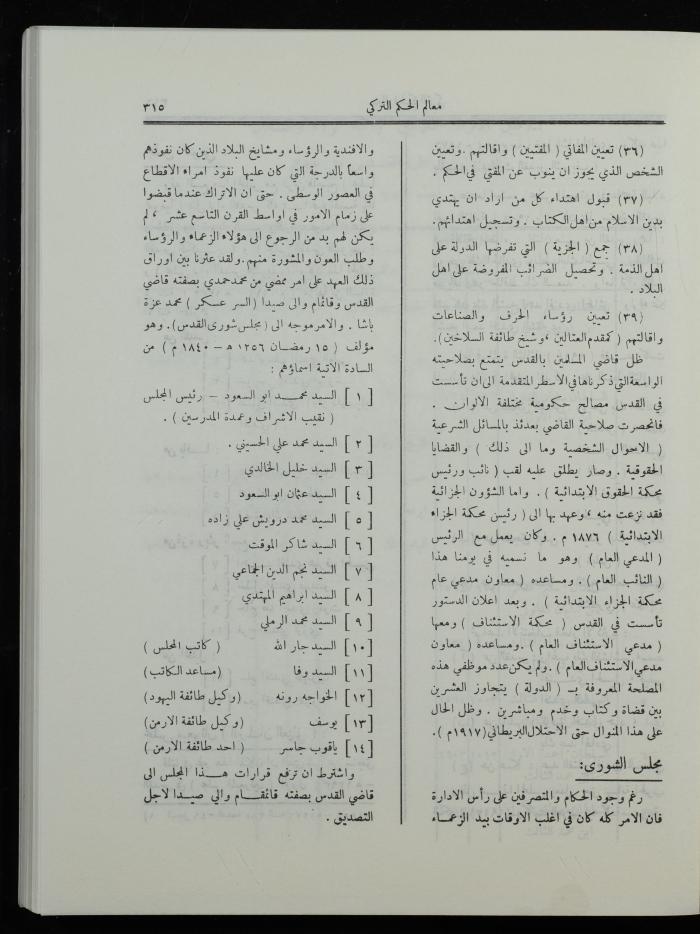 معالم الحكم التركي
٣١٥
(٣٦) تعيين المفاتي ( المفتيين ) واقالتهم . وتعيين
الشخص الذي يجوز ان ينوب عن المفتي في الحكم .
(٣٧) قبول اهتداء كل من اراد ان يهتدي
بدين الاسلام من اهل الكتاب . وتسجيل اهتدائهم .
(٣٨) جمع ( الجزية ) التي تفرضها الدولة على
اهل الذمة . وتحصيل الضرائب المفروضة على اهل
البلاد .
(٣٩) تعيين رؤساء الحرف والصناعات
واقالتهم ( كمقدم العتالين ، وشيخ طائفة السلاخين ) .
ظل قاضي المسلمين بالقدس يتمتع بصلاحيته
الواسعة التي ذكرناها في الاسطر المتقدمة الى ان تأسست
في القدس مصالح حكومية مختلفة الالوان .
فانحصرت صلاحية القاضي بعدئذ بالمسائل الشرعية
( الاحوال الشخصية وما الى ذلك ) والقضايا
الحقوقية . وصار يطلق عليه لقب ( نائب ورئيس
محكمة الحقوق الابتدائية ) . واما الشؤون الجزائية
فقد نزعت منه ، وعهد بها الى ( رئيس محكمة الجزاء
الابتدائية ) ١٨٧٦ م . وكان يعمل مع الرئيس
( المدعي العام ) وهو ما نسميه في يومنا هذا
( النائب العام ) . ومساعده ( معاون مدعي عام
محكمة الجزاء الابتدائية ) . وبعد اعلان الدستور
تأسست في القدس ( محكمة الاستئناف ) ومعها
( مدعي الاستئناف العام ) . ومساعده ( معاون
مدعي الاستئناف العام ) . ولم يكن عدد موظفي هذه
المصلحة المعروفة بـ ( الدولة ) يتجاوز العشرين
بين قضاة وكتاب وخدم ومباشرين . وظل الحال
على هذا المنوال حتى الاحتلال البريطاني (١٩١٧م ) .
مجلس الشورى :
رغم وجود الحكام والمتصرفين على رأس الادارة
فان الامر كله كان في اغلب الاوقات بيد الزعمـاء
والافندية والرؤساء ومشايخ البلاد الذين كان نفوذهم
واسعاً بالدرجة التي كان عليها نفوذ امراء الاقطاع
في العصور الوسطى . حتى ان الاتراك عندما قبضوا
على زمام الامور في اواسط القرن التاسع عشر ، لم
يكن لهم بد من الرجوع الى هؤلاء الزعماء والرؤساء
وطلب العون والمشورة منهم . ولقد عثرنا بين اوراق
ذلك العهد على امر ممضي من محمد حمدي بصفته قاضي
القدس وقائمام والى صيدا ( السر عسكر ) محمد عزة
باشا . والامر موجه الى ( مجلس شورى القدس ) . وهو
مؤلف ( ١٥ رمضان ١٢٥٦ هـ – ١٨٤٠ م ) من
السادة الاتية اسماؤهم :
[ ١ ] السيد محمـــد ابو السعود – رئيس المجلس
( نقيب الاشراف وعمدة المدرسين ) .
[ ٢ ] السيد محمد علي الحسيني .
[ ٣ ] السيد خليل الخالدي
[ ٤ ] السيد عثمان ابو السعود
[ ٥ ] السيد محمد درويش علي زاده
[ ٦ ] السيد شاكر الموقت
[ ٧ ] السيد نجم الدين الجماعي
[ ٨ ] السيد ابراهيم المهتدي
[ ٩ ] السيد محمد الرملي
[١٠] السيد جار الله ( كاتب المجلس )
[١١] السيد وفا (مساعد الكاتب)
[١٢] الخواجه رونه (وكيل طائفة اليهود)
[١٣] يوسف (وكيل طائفة الارمن)
[١٤] ياقوب جاسر ( احد طائفة الارمن )
واشترط ان ترفع قرارات هـــذا المجلس الى
قاضي القدس بصفته قائمقـــام والي صيـــدا لاجل
التصديق .